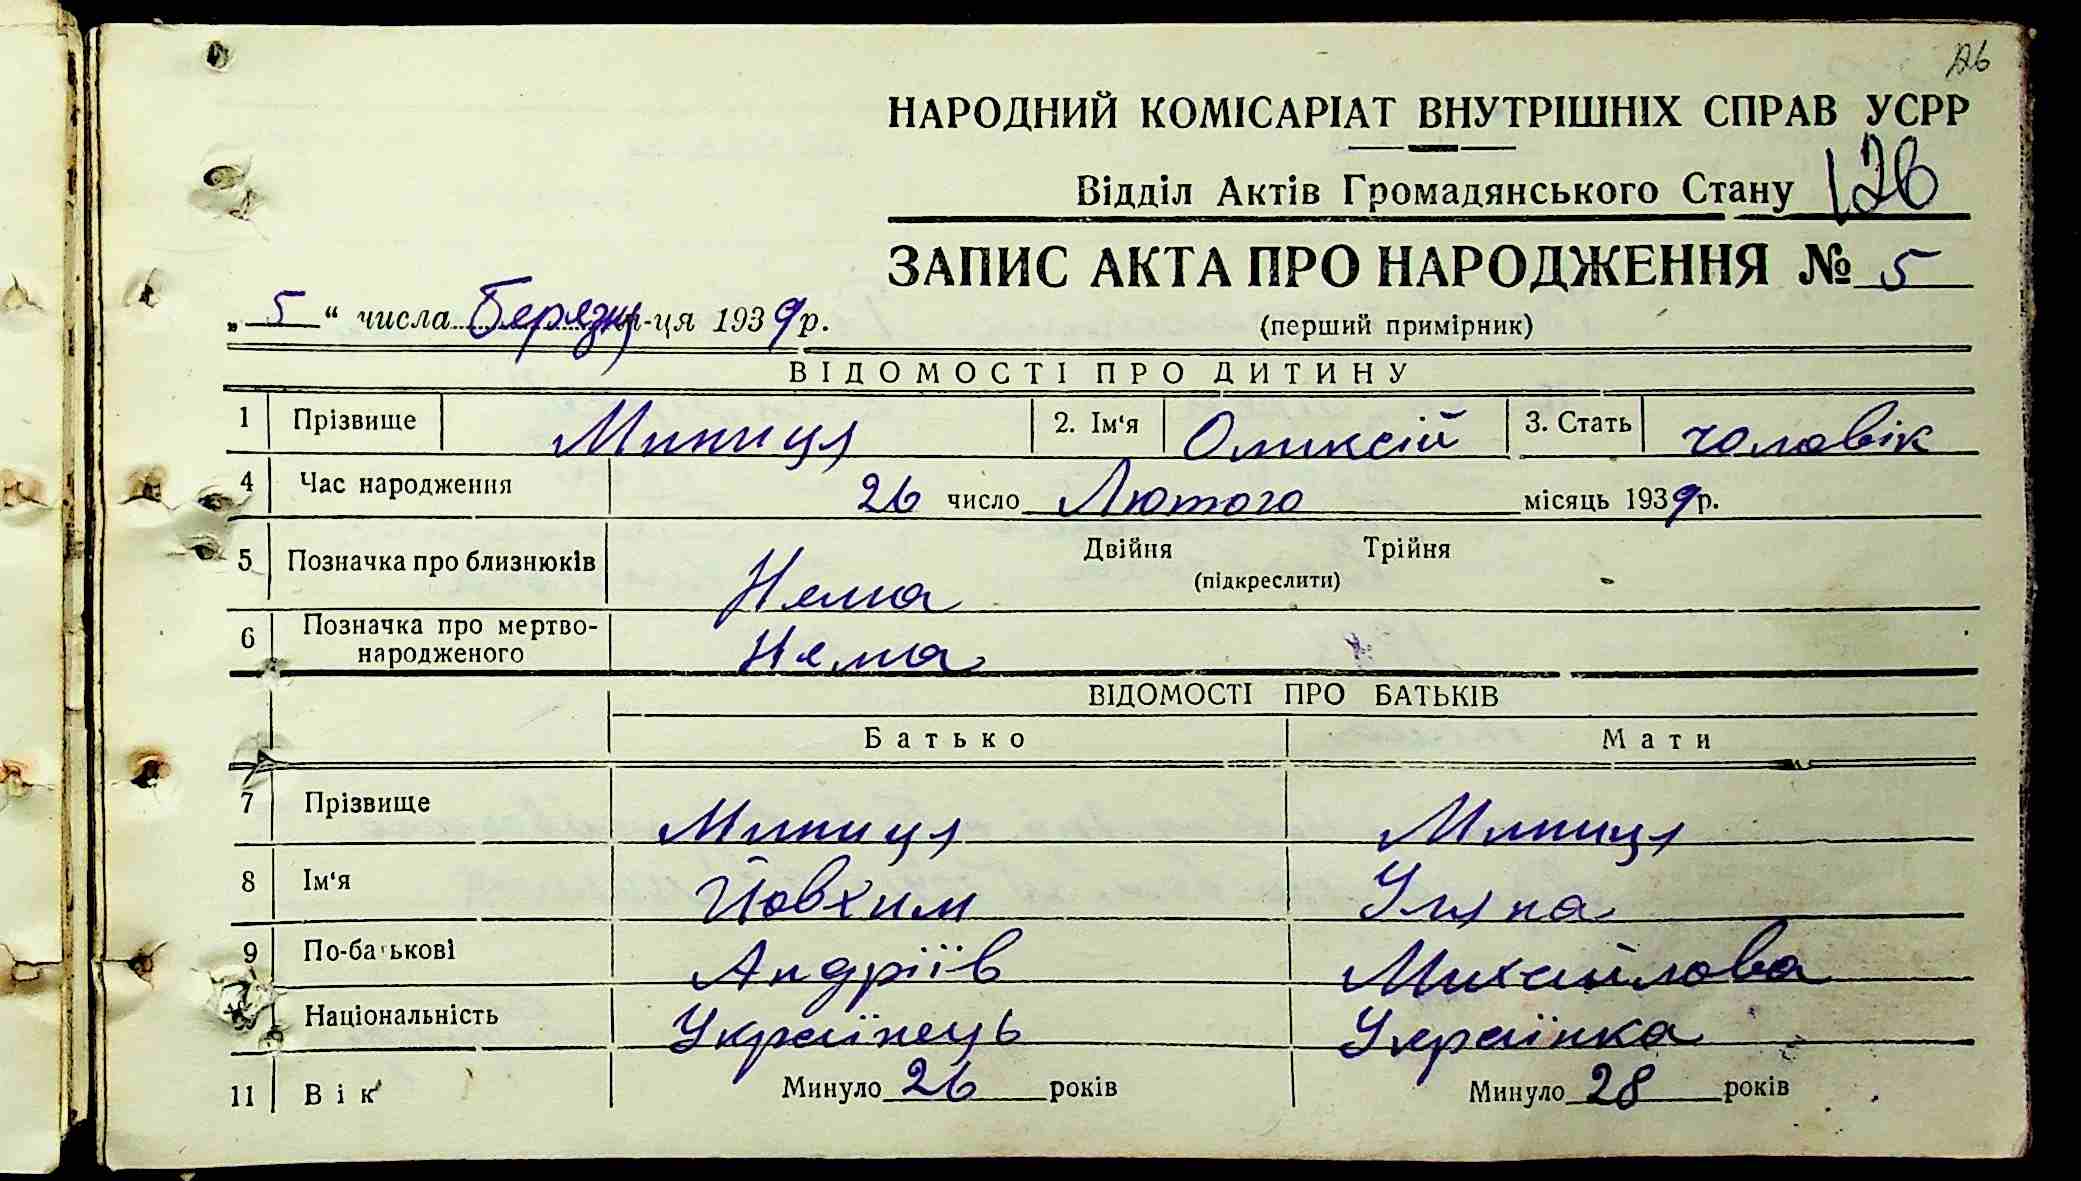 126
НАРОДНИЙ КОМІСАРІАТ ВНУТРІШНІХ СПРАВ УСРР
Відділ Актів Громадянського Стану 126
ЗАПИС АКТА ПРО НАРОДЖЕННЯ № 5
„ 5 “ числа Берязня м-ця 1939 р.
(перший примірник)
ВІДОМОСТІ ПРО ДИТИНУ
1 Прізвище Миниця 2. Ім‘я Оликсій 3. Стать чоловік
4 Час народження 26 число Лютого місяць 1939 р.
5 Позначка про близнюків Няма Двійня Трійня
(підкреслити)
6 Позначка про мертво-
народженого Няма
ВІДОМОСТІ ПРО БАТЬКІВ
Батько Мати
7 Прізвище Миниця Миниця
8 Ім‘я Йовхим Уляна
9 По-батькові Андріїв Михайлова
Національність Українець Українка
11 Вік Минуло 26 років Минуло 28 років